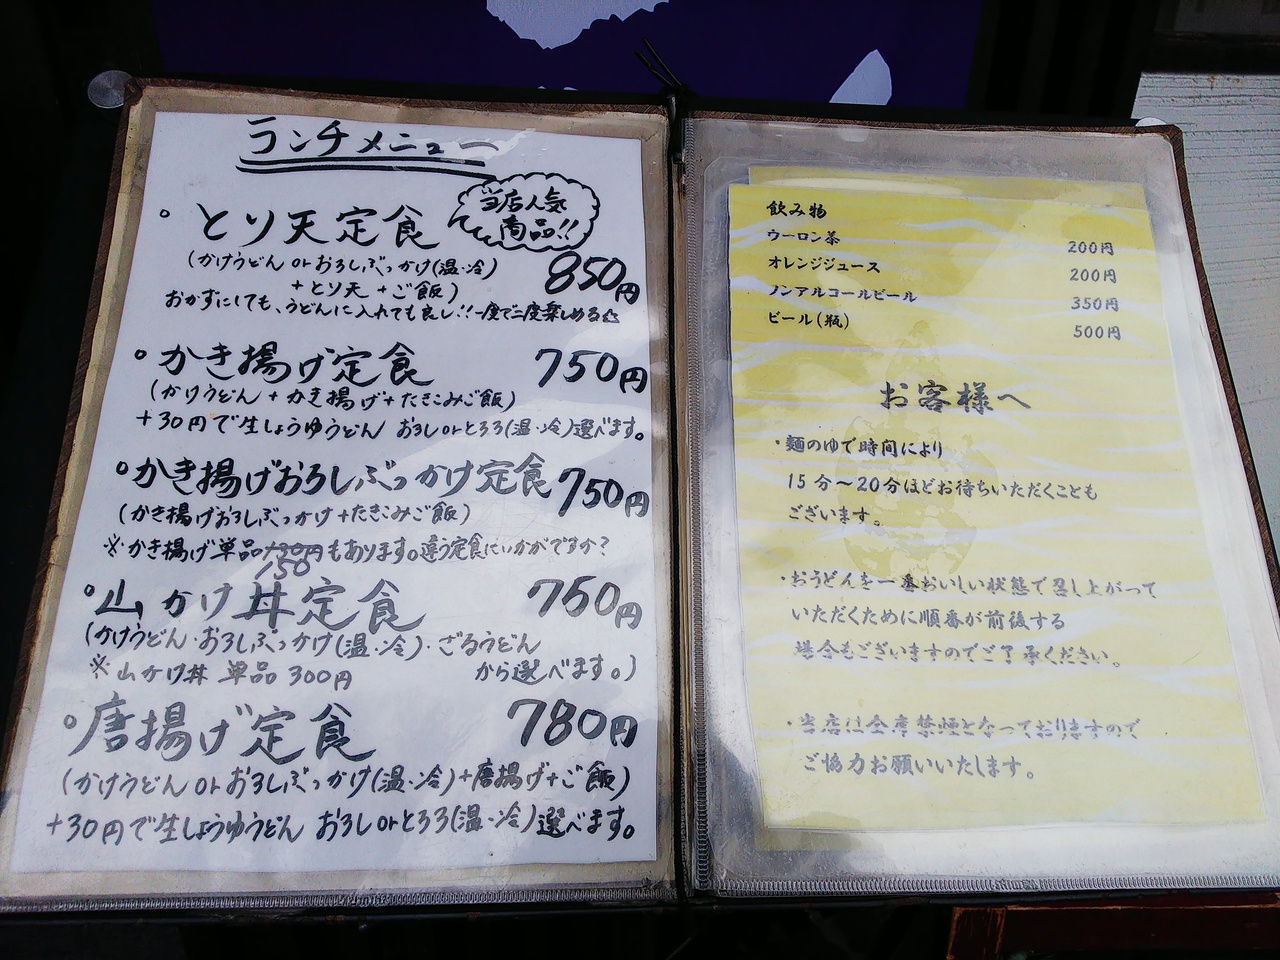 ランチメニュー
当店人気
商品!!
。とり天定食
850円
(かけうどん or おろしぶっかけ(温・冷)
+とり天 +ご飯)
おかずにしても、うどんに入れても良し!!一度で二度楽しめる☆
。かき揚げ定食 750円
(かけうどん+かき揚げ+たきこみご飯)
+30円で生しょうゆうどん おろしorとろろ(温・冷)選べます。
。かき揚げおろしぶっかけ定食 750円
(かき揚げおろしぶっかけ+たきこみご飯)
※かき揚げ単品130円もあります。違う定食にいかがですか?
150
。山かけ丼定食 750円
(かけうどん・おろしぶっかけ(温・冷)・ざるうどん
※山かけ丼 単品 300円 から選べます。)
。唐揚げ定食 780円
(かけうどん or おろしぶっかけ(温・冷)+唐揚げ+ご飯)
+30円で生しょうゆうどん おろしorとろろ(温・冷)選べます。
飲み物
ウーロン茶 200円
オレンジジュース 200円
ノンアルコールビール 350円
ビール(瓶) 500円
お客様へ
・麺のゆで時間により
15分〜20分ほどお待ちいただくことも
ございます。
・おうどんを一番おいしい状態で召し上がって
いただくために順番が前後する
場合もございますのでご了承ください。
・当店は全席禁煙となっておりますので
ご協力お願いいたします。